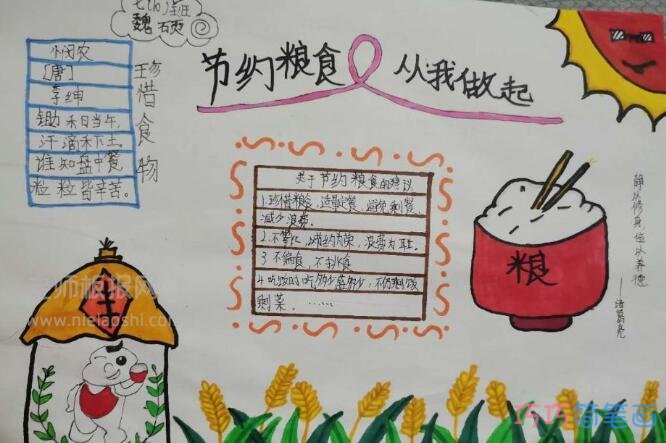 七(1)班
魏硕
节约粮食 从我做起
悯农
[唐]
李绅
锄禾日当午,
汗滴禾下土
谁知盘中餐
粒粒皆辛苦。
珍惜食物
关于节约粮食的建议
1.珍惜粮食,适量用餐,避免剩餐,
减少浪费。
2.不攀比,以节约为荣,浪费为耻。
3 不偏食,不挑食
4.吃饭时吃多少盛多少,不仍剩饭
剩菜。……
粮
静以修身 俭以养德
——诸葛亮
www.nielaoshi.com
巧巧简笔画